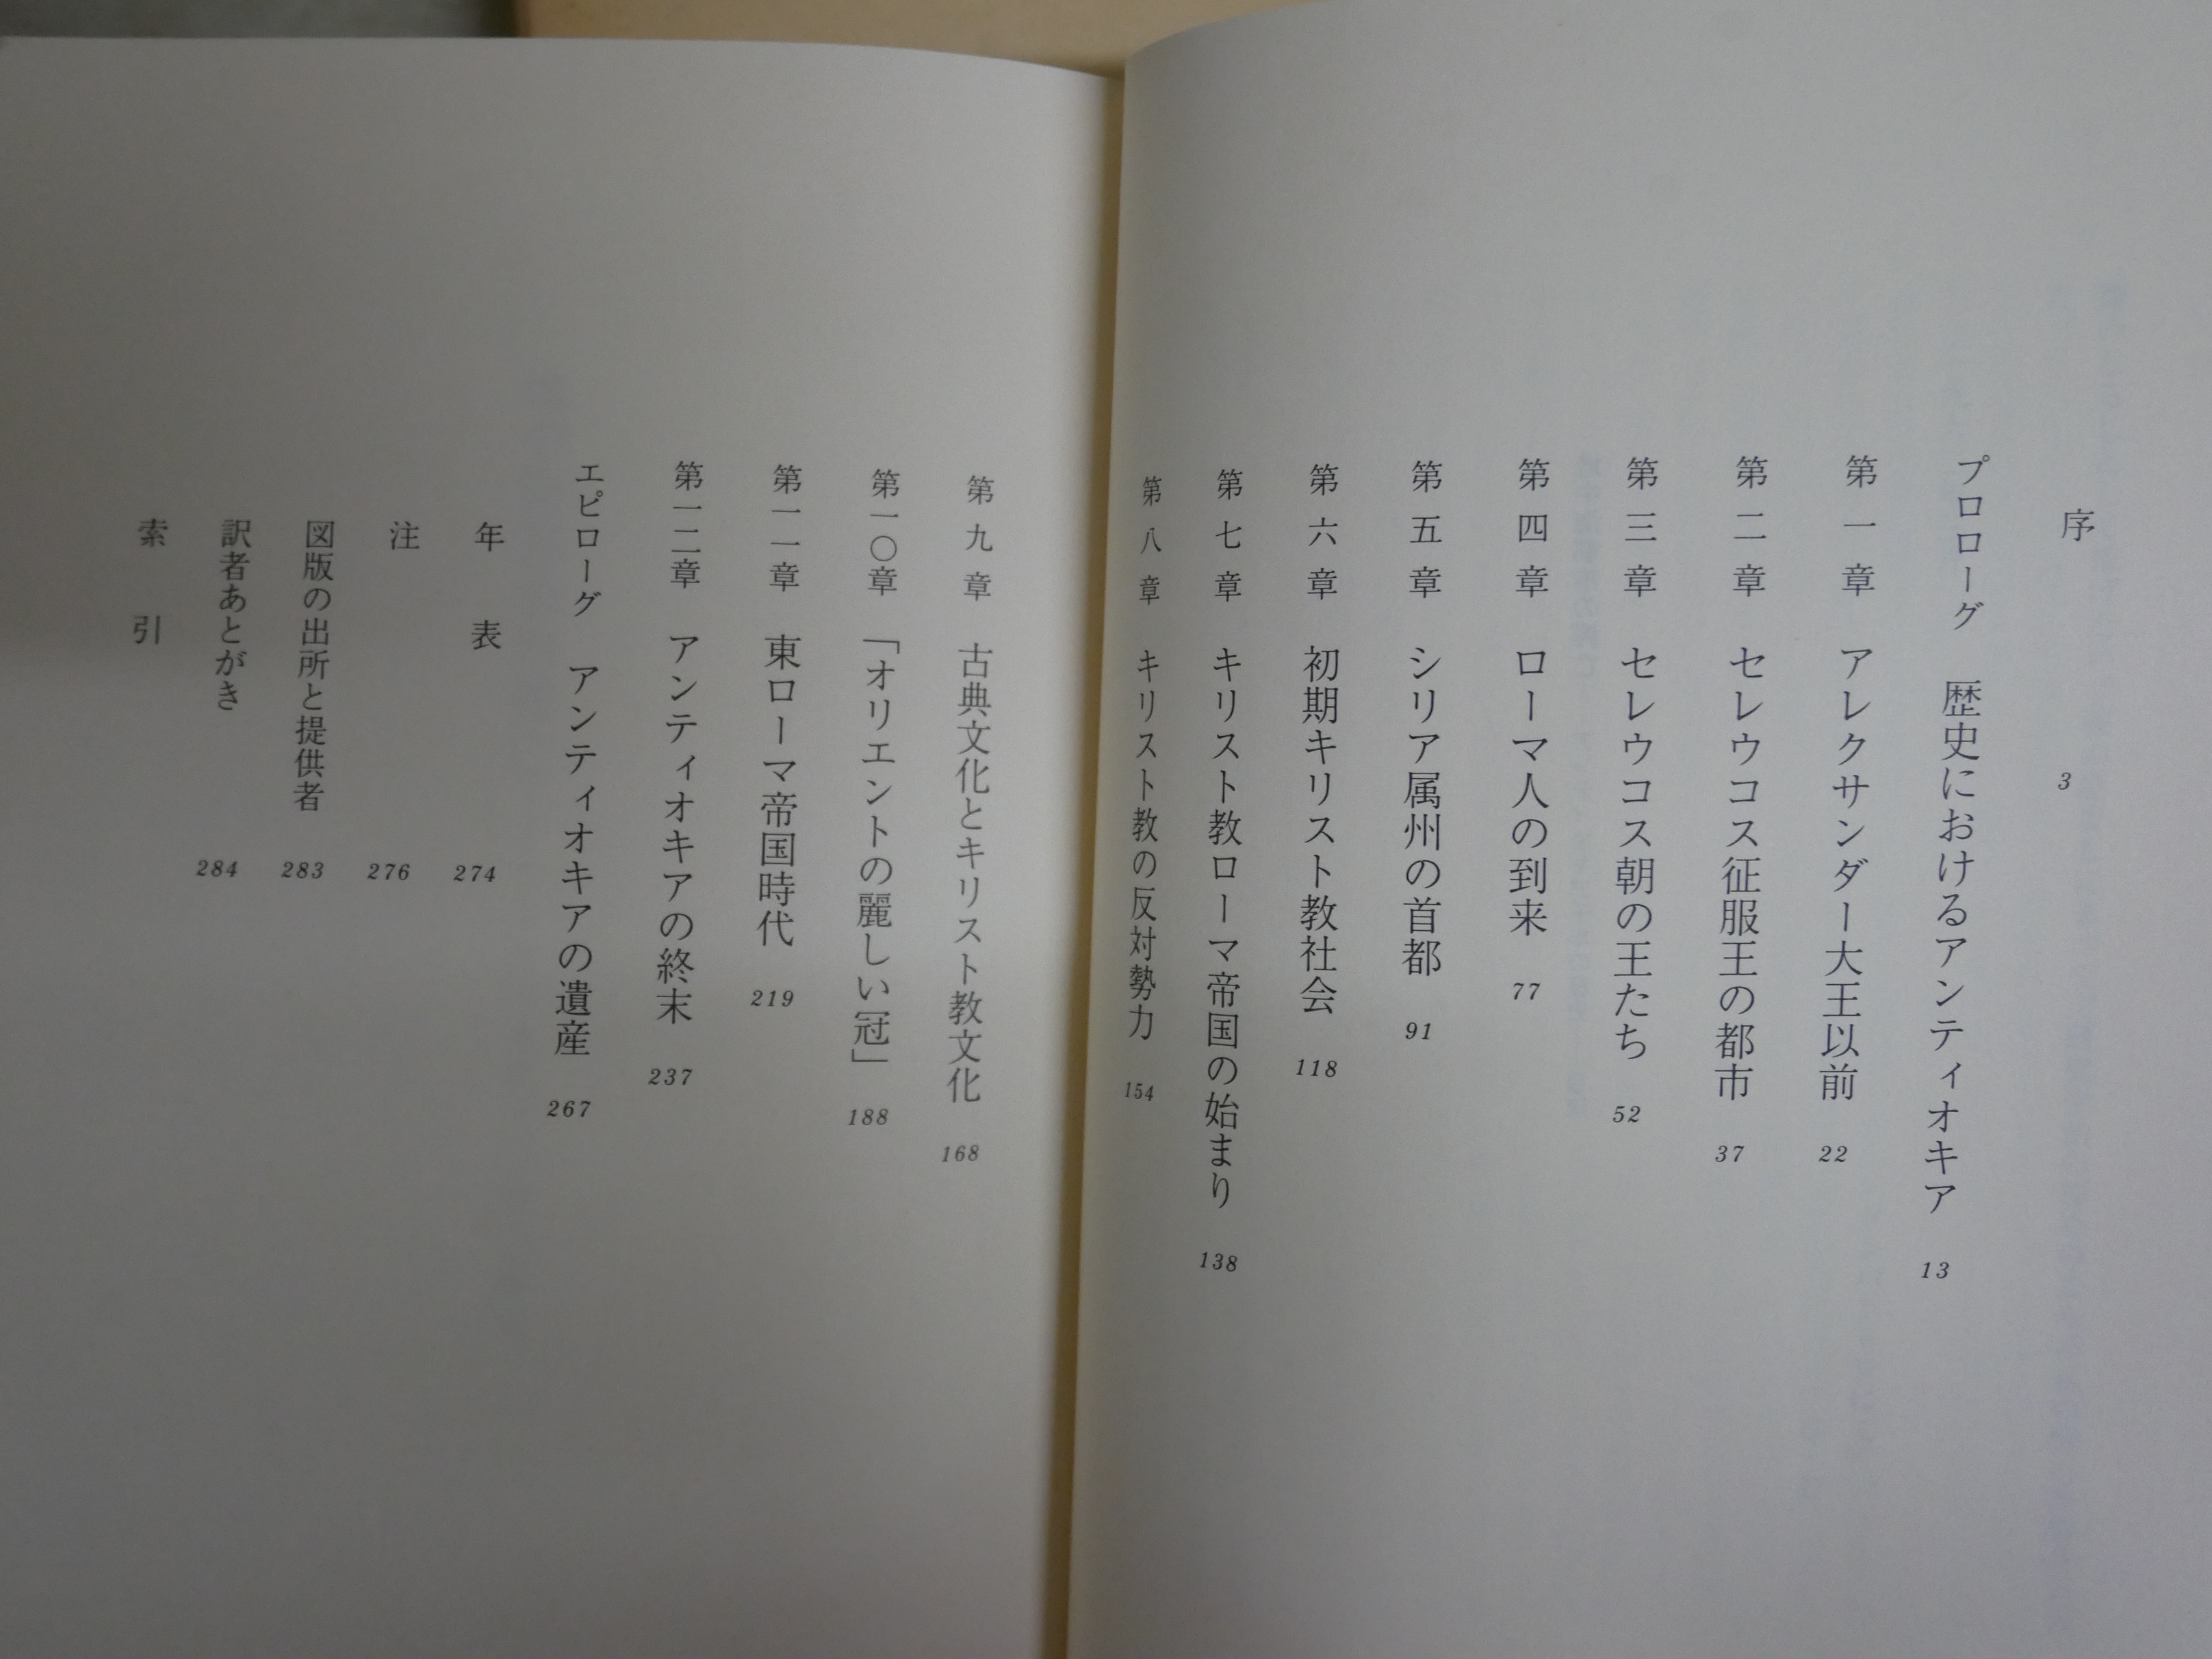 序 3
プロローグ 歴史におけるアンティオキア 13
第一章 アレクサンダー大王以前 22
第二章 セレウコス征服王の都市 37
第三章 セレウコス朝の王たち 52
第四章 ローマ人の到来 77
第五章 シリア属州の首都 91
第六章 初期キリスト教社会 118
第七章 キリスト教ローマ帝国の始まり 138
第八章 キリスト教の反対勢力 154
第九章 古典文化とキリスト教文化 168
第一〇章 「オリエントの麗しい冠」 188
第一一章 東ローマ帝国時代 219
第一二章 アンティオキアの終末 237
エピローグ アンティオキアの遺産 267
年表 274
注 276
図版の出所と提供者 283
訳者あとがき 284
索引